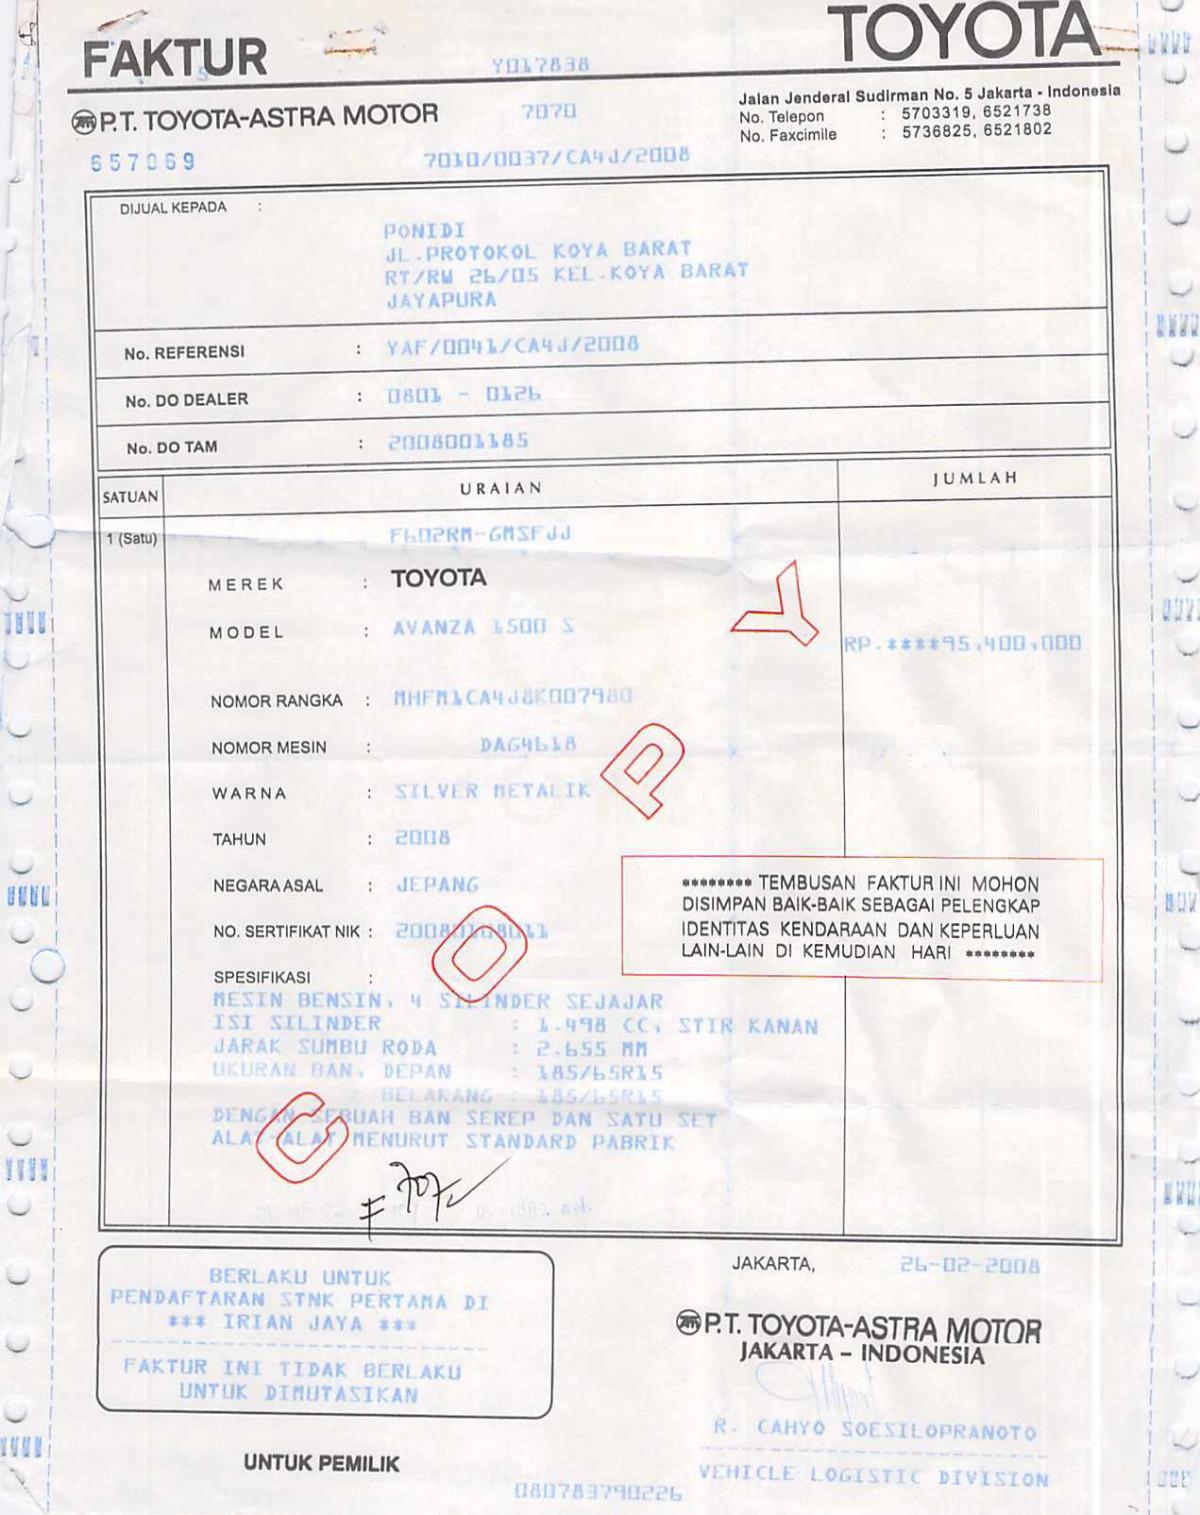 FAKTUR
TOYOTA
Y017838
P.T. TOYOTA-ASTRA MOTOR
7070
Jalan Jenderal Sudirman No. 5 Jakarta - Indonesia
No. Telepon : 5703319, 6521738
No. Faxcimile : 5736825, 6521802
657069
7010/0037/CA4J/2008
DIJUAL KEPADA :
PONIDI
JL.PROTOKOL KOYA BARAT
RT/RW 26/05 KEL.KOYA BARAT
JAYAPURA
No. REFERENSI : YAF/0041/CA4J/2008
No. DO DEALER : 0801 - 0126
No. DO TAM : 2008001185
SATUAN URAIAN JUMLAH
1 (Satu) F602RM-GMSFJJ
MEREK : TOYOTA
MODEL : AVANZA 1500 S
RP.****95,400,000
NOMOR RANGKA : MHFM1CA4J8K007980
NOMOR MESIN : DAG4618
WARNA : SILVER METALIK
TAHUN : 2008
NEGARA ASAL : JEPANG
NO. SERTIFIKAT NIK : 20080108011
******** TEMBUSAN FAKTUR INI MOHON
DISIMPAN BAIK-BAIK SEBAGAI PELENGKAP
IDENTITAS KENDARAAN DAN KEPERLUAN
LAIN-LAIN DI KEMUDIAN HARI ********
SPESIFIKASI :
MESIN BENSIN, 4 SILINDER SEJAJAR
ISI SILINDER : 1.498 CC, STIR KANAN
JARAK SUMBU RODA : 2.655 MM
UKURAN BAN, DEPAN : 185/65R15
BELAKANG : 185/65R15
DENGAN SEBUAH BAN SEREP DAN SATU SET
ALAT-ALAT MENURUT STANDARD PABRIK
COPY
7070
BERLAKU UNTUK
PENDAFTARAN STNK PERTAMA DI
*** IRIAN JAYA ***
FAKTUR INI TIDAK BERLAKU
UNTUK DIMUTASIKAN
JAKARTA, 26-02-2008
P.T. TOYOTA-ASTRA MOTOR
JAKARTA – INDONESIA
R. CAHYO SOESILOPRANOTO
VEHICLE LOGISTIC DIVISION
UNTUK PEMILIK
080783790226